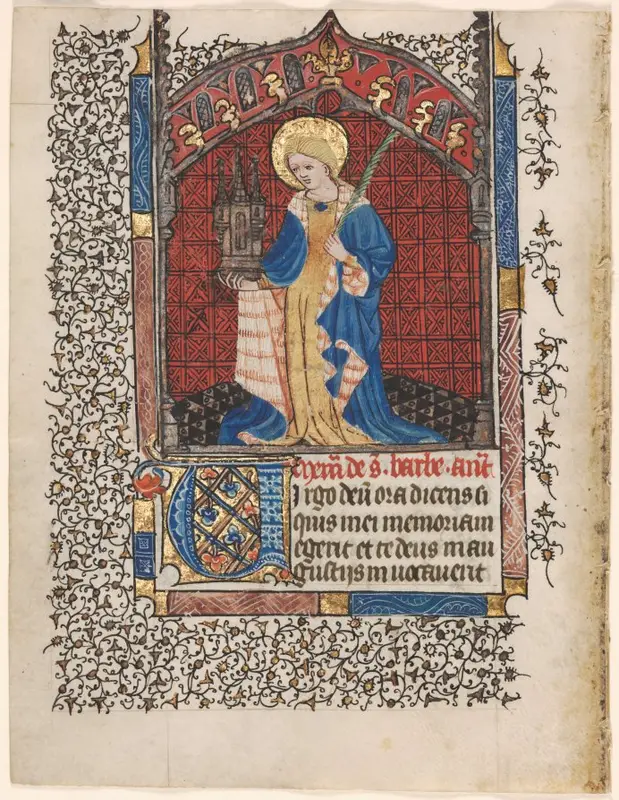 de s̃. barbe. añt
Virgo deū ora dicens si
quis mei memoriam
egerit et te deus in an
gustijs inuocauerit